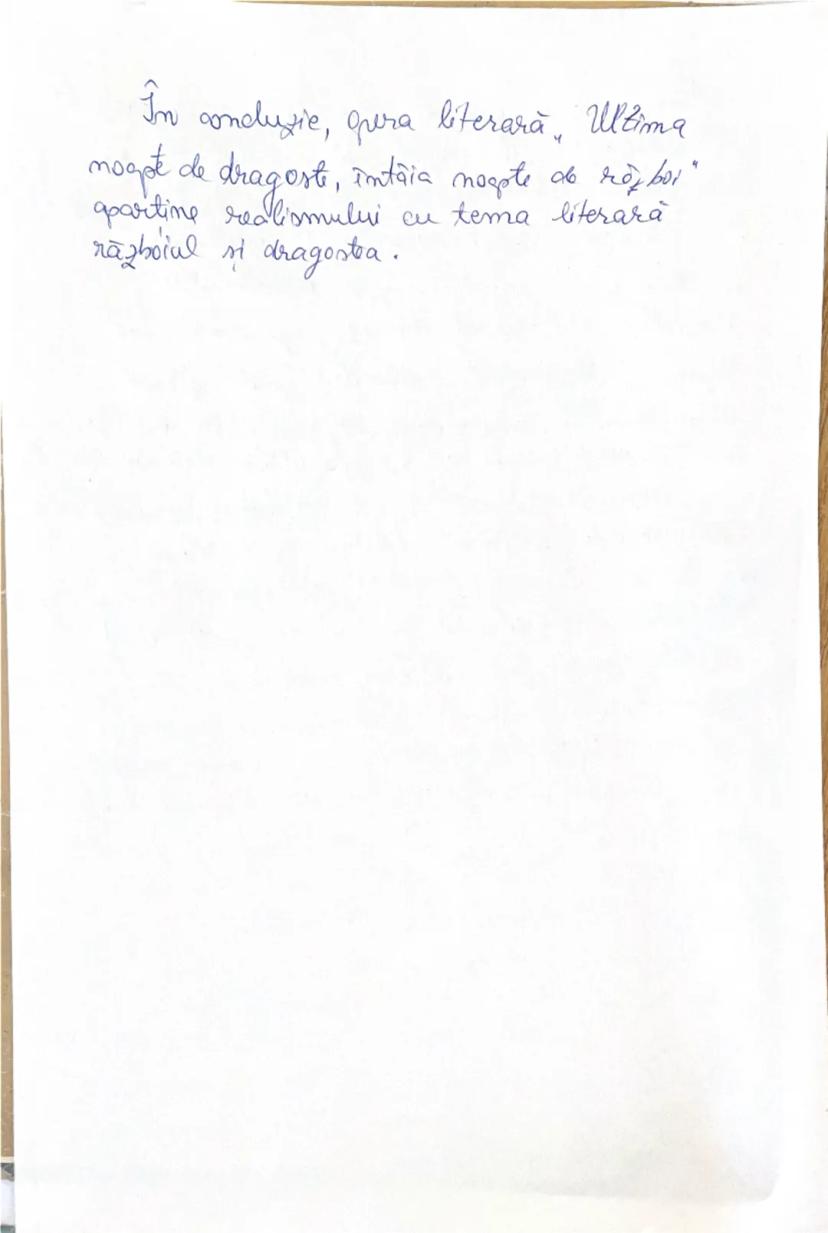 În concluzie, opera literară „Ultima
noapte de dragoste, întâia noapte de război"
aparține realismului cu tema literară
războiul și dragostea.